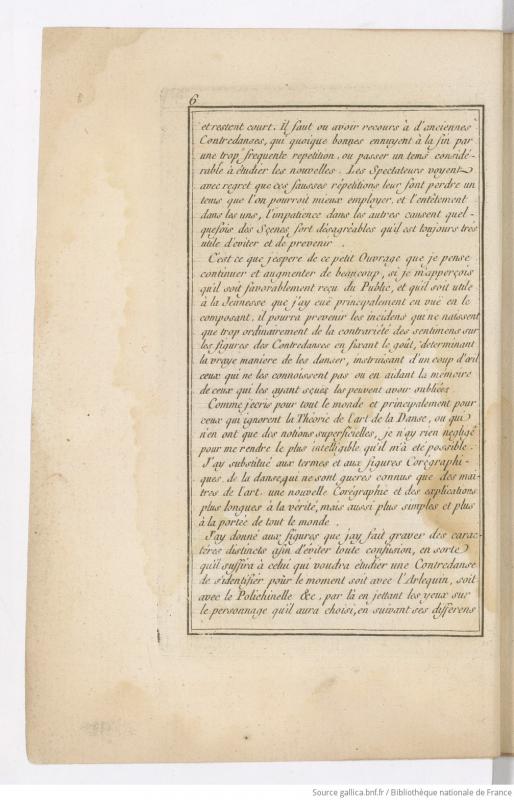 6
et restent court. Il faut ou avoir recours à d'anciennes
Contredanses, qui quoique bonnes ennuyent à la fin par
une trop frequente repetition, ou passer un tems considé-
rable à étudier les nouvelles. Les Spectateurs voyent
avec regret que ces fausses répétitions leur font perdre un
tems que l'on pourroit mieux employer, et l'entêtement
dans les uns, l'impatience dans les autres causent quel-
quefois des Sçenes fort désagréables qu'il est toujours tres
utile d'eviter et de prevenir.
C'est ce que j'espere de ce petit Ouvrage que je pense
continuer et augmenter de beaucoup, si je m'apperçois
qu'il soit favorablement reçu du Public, et qu'il soit utile
à la Jeunesse que j'ay eüe principalement en vuë en le
composant. il pourra prevenir les incidens qui ne naissent
que trop ordinairement de la contrariété des sentimens sur
les figures des Contredanses en fixant le goût, determinant
la vraye maniere de les danser, instruisant d'un coup d'œil
ceux qui ne les connoissent pas ou en aidant la mémoire
de ceux qui les ayant sçues les peuvent avoir oubliées
Comme j'ecris pour tout le monde et principalement pour
ceux qui ignorent la Théorie de l'art de la Danse, ou qui
n'en ont que des notions superficielles, je n'ay rien negligé
pour me rendre le plus intelligible qu'il m'a eté possible.
J'ay substitué aux termes et aux figures Corégraphi-
ques de la danse, qui ne sont gueres connus que des maî-
tres de l'art une nouvelle Corégraphie et des explications
plus longues à la vérité, mais aussi plus simples et plus
à la portée de tout le monde.
J'ay donné aux figures que j'ay fait graver des carac-
téres distincts afin d'éviter toute confusion, en sorte
qu'il suffira à celui qui voudra étudier une Contredanse
de s'identifier pour le moment soit avec l'Arlequin, soit
avec le Polichinelle &c. par là en jettant les yeux sur
le personnage qu'il aura choisi, en suivant ses différens
Source gallica.bnf.fr / Bibliothèque nationale de France